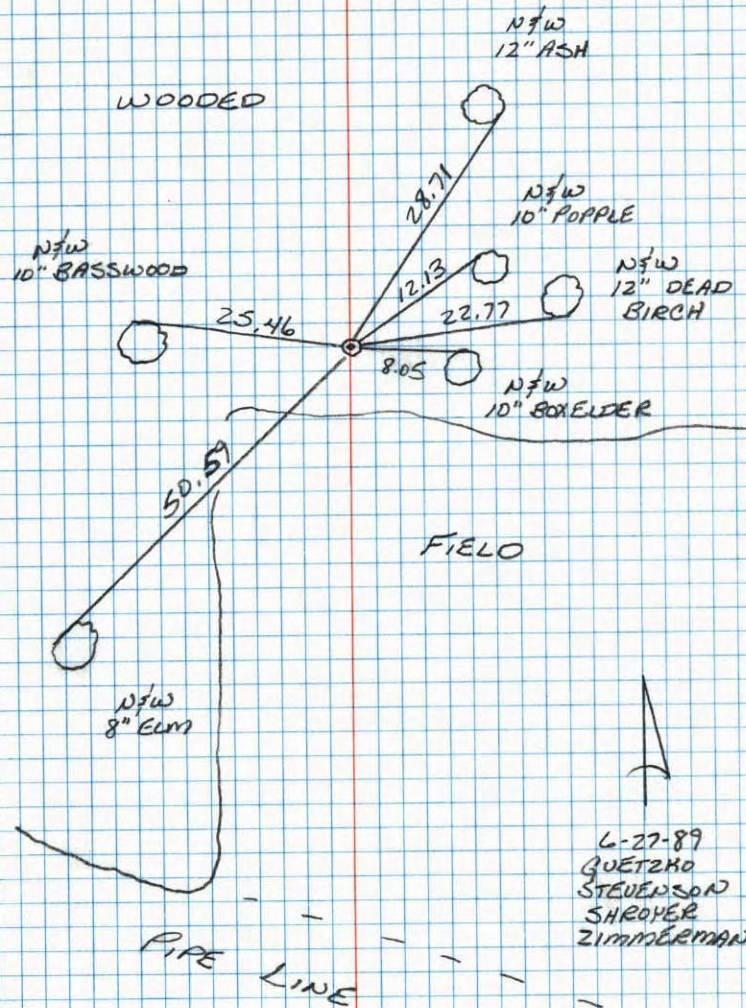 N&W
12" ASH
WOODED
28.71
N&W
10" POPPLE
N&W
10" BASSWOOD
12.13
N&W
12" DEAD
BIRCH
25.46
22.77
8.05
N&W
10" BOXELDER
50.59
FIELD
N&W
8" ELM
6-27-89
GUETZKO
STEVENSON
SHROYER
ZIMMERMAN
PIPE LINE